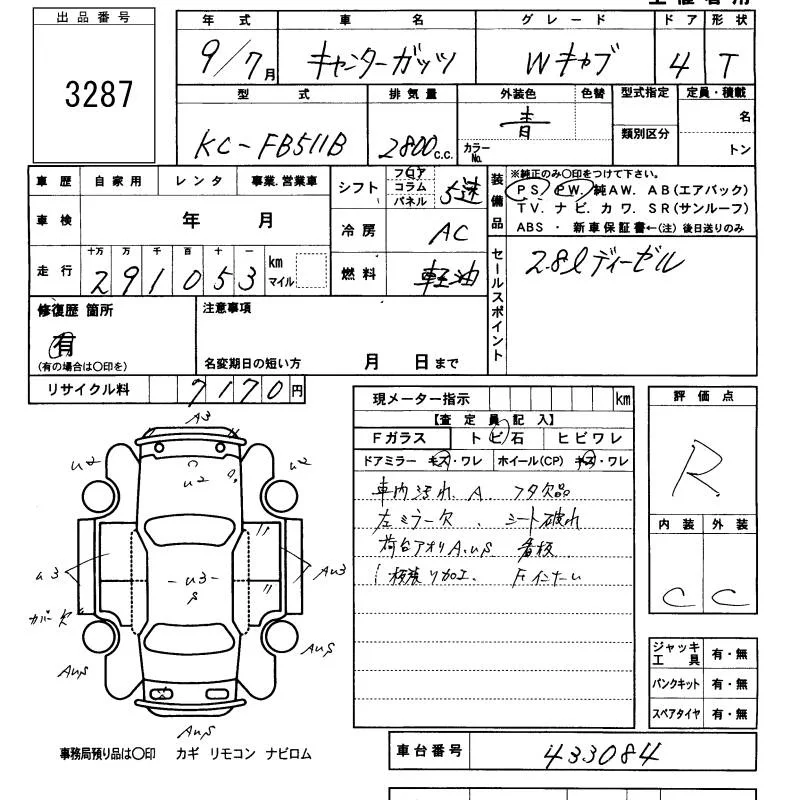 出品番号
3287
年式 車名 グレード ドア 形状
9/7月 キャンターガッツ Wキャブ 4 T
型式 排気量 外装色 色替 型式指定 定員・積載
KC-FB511B 2800c.c. 青 カラーNo. 類別区分 名 トン
車歴 自家用 レンタ 事業.営業車
車検 年 月
十万 万 千 百 十 一
走行 291053 km マイル
シフト フロア コラム パネル 5速
冷房 AC
燃料 軽油
装備品 ※純正のみ〇印をつけて下さい。
PS. PW. 純AW. AB(エアバック)
TV. ナビ. カワ. SR(サンルーフ)
ABS ・ 新車保証書←(注) 後日送りのみ
セールスポイント 2.8ℓディーゼル
修復歴 箇所
有
(有の場合は〇印を)
注意事項
名変期日の短い方 月 日まで
リサイクル料 7170円
現メーター指示 km
【査定員記入】
Fガラス トビ石 ヒビワレ
ドアミラー キズ・ワレ ホイール(CP) キズ・ワレ
車内汚れ、A、フタ欠品
左ミラー欠、シート破れ
荷台アオリAuS 看板
評価点
R
内装 外装
C C
ジャッキ工具 有・無
パンクキット 有・無
スペアタイヤ 有・無
A3
u2 u2 u2
u3 u3 S Au3
カバー欠
AuS AuS
AuS
事務局預り品は〇印 カギ リモコン ナビロム
車台番号 433084